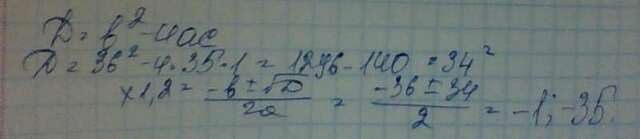 D = b² - 4ac
D = 36² - 4·35·1 = 1296 - 140 = 34²
x1,2 = (-b ± √D)/2a = (-36 ± 34)/2 = -1; -35.